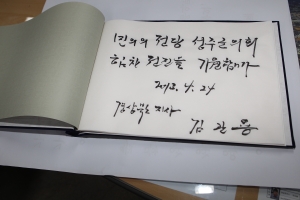 민의의 전당 성주군의회
힘찬 전진을 기원합니다
2013. 4. 24
경상북도 지사
김관용